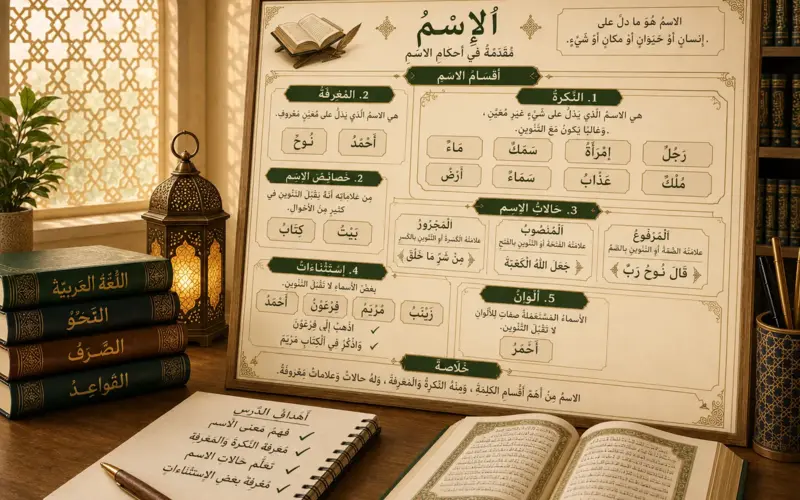 اَلإِسْمُ
مُقَدِّمَةٌ في أحكامِ الاسْمِ
الاسمُ هُوَ ما دلَّ على
إنسانٍ أوْ حَيَوَانٍ أوْ مكانٍ أوْ شَيْءٍ.
أقسَامُ الاسمِ
1. النَّكرةُ
هي الاسمُ الَّذي يَدَلُّ على شَيْءٍ غيرِ مُعيَّنٍ ،
وَغالبًا يَكونُ مَعَ التَّنوينِ.
رَجُلٌ
إمْرَأَةٌ
سَمَكٌ
مَاءٌ
مُلْكٌ
عَذَابٌ
سَمَاءٌ
أرْضٌ
2. المَعْرفَةُ
هي الاسمُ الَّذي يَدَلُّ على مُعيَّنٍ مَعروفٍ.
أَحْمَدُ
نُوحٌ
2. خصائصُ الاسمِ
مِن عَلاماتِهِ أنَّهُ يَقبَلُ التَّنوينَ في
كثيرٍ مِنَ الأحْوالِ.
بَيْتٌ
كِتابٌ
3. حالاتُ الإسمِ
اَلْمَرْفُوعُ
علامتُهُ الضَّمَّةُ أو التَّنوينُ بالضَّمِّ
قَالَ نُوحٌ رَبِّ
اَلْمَنْصُوبُ
علامتُهُ الفَتحَةُ أو التَّنوينُ بالفَتحِ
جَعَلَ اللهُ الْكَعْبَةَ
اَلْمَجْرُورُ
علامتُهُ الكَسرةُ أو التَّنوينُ بالكَسرِ
مِنْ شَرِّ مَا خَلَقَ
4. إسْتَثْنَاءَاتٌ
بعضُ الأسماءِ لا تَقبَلُ التَّنوينَ.
زَيْنَبُ
مَرْيَمُ
فِرْعَوْنُ
أَحْمَدُ
اذهَبْ إلَى فِرْعَوْنَ
وَاذْكُرْ فِي الْكِتَابِ مَرْيَمَ
5. ألْوانٌ
الأسماءُ المُسْتَعْمَلَةُ صِفاتٍ للألْوانِ
لا تَقبَلُ التَّنوينَ.
أَحْمَرُ
خُلَاصةٌ
الاسمُ مِنْ أهَمِّ أقْسامِ الكلِمَةِ ، وَمِنْهُ النَّكرةُ وَالْمَعْرِفَةُ ، وَلَهُ حالاتٌ وَعَلاماتٌ مَعْروفَةٌ.
اللُّغَةُ العَرَبيَّةُ
النَّحْوُ
الصَّرْفُ
القَواعِدُ
أهدافُ الدَّرسِ
فَهْمُ مَعْنى الاسمِ
مَعْرِفَةُ النَّكرةِ وَالْمَعْرِفَةِ
تَعَلُّمُ حَالاتِ الاسمِ
مَعْرِفَةُ بَعْضِ الإسْتِثْنَاءَاتِ